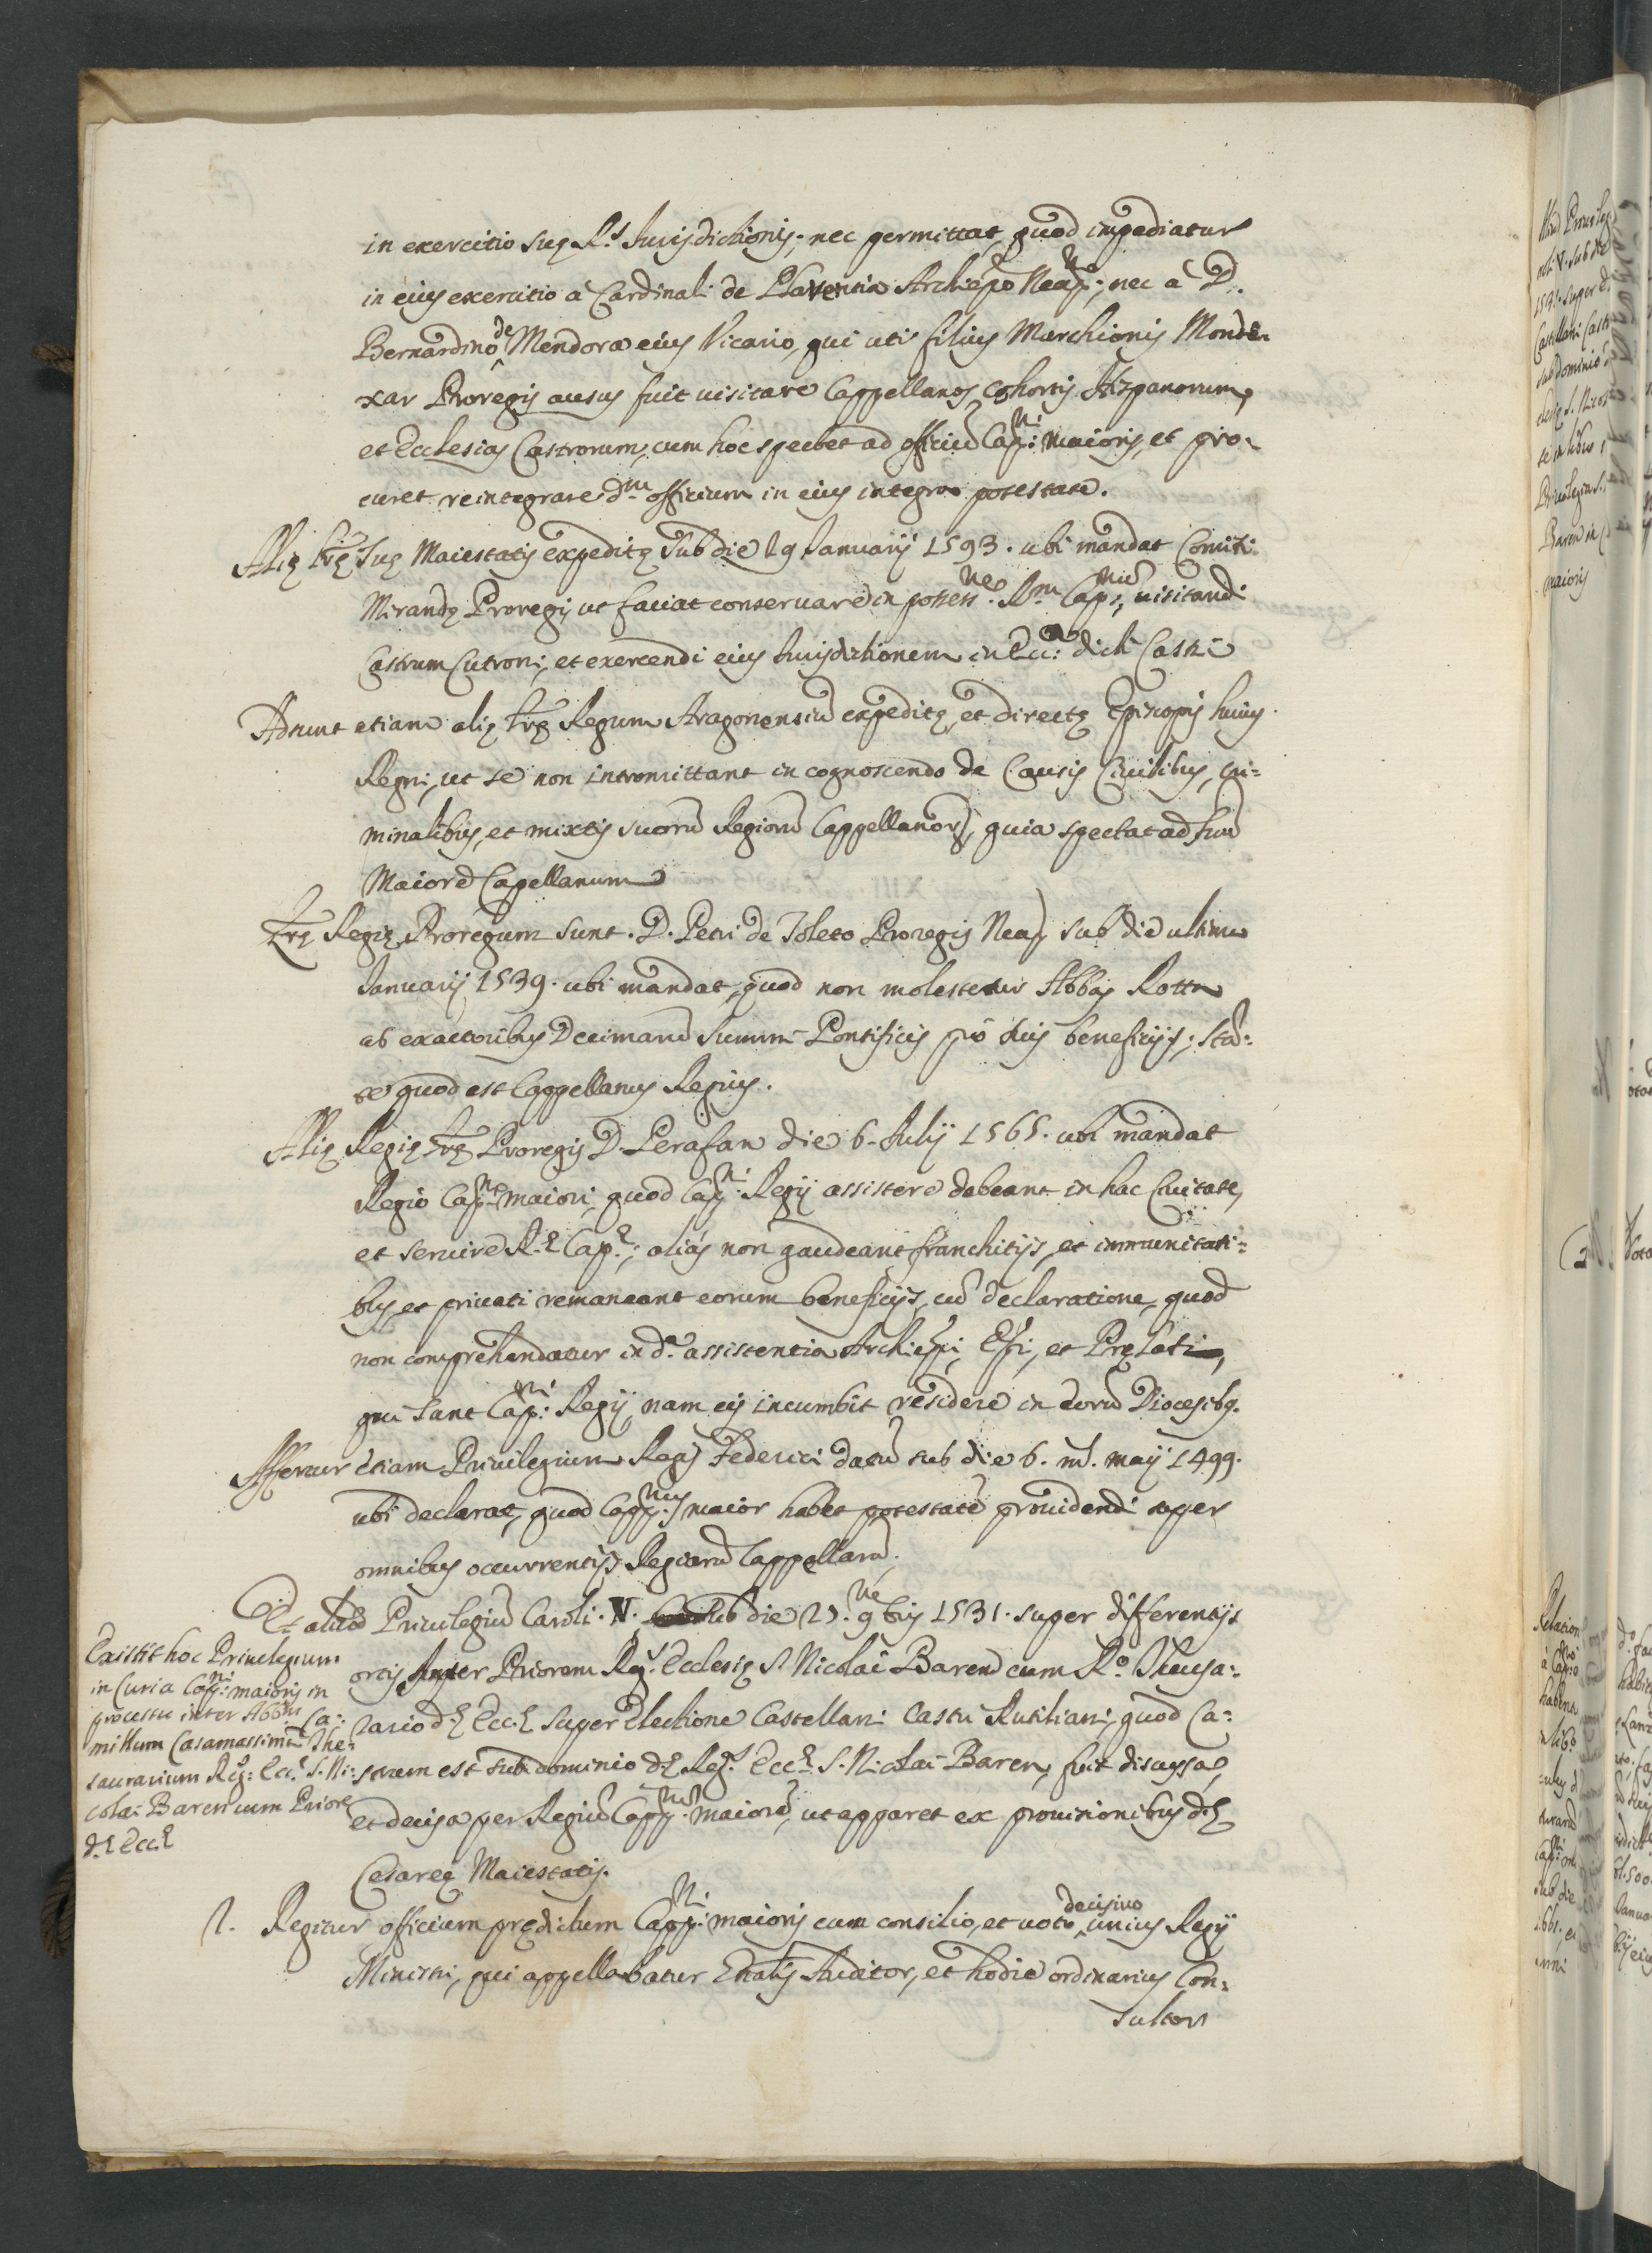 in exercitio suę R.ę Jurisdictionis; nec permittat, quod impediatur
in eius exercitio à Cardinali de Plaventia Archiepo Neap:nᵒ; nec à D.
Bernardino de Mendoza eius Vicario, qui uti filius Marchionis Monde-
xar Proregis ausus fuit visitare Cappellanos cohortis Hispanorum,
et Ecclesias Castrorum, cum hoc spectet ad officiũ Cap:ni maioris, et pro-
curet reintegrare d.m officium in eius integra potestate.
Alię lrę Suę Maiestatis expeditę sub die 29 Januarij 1593. ubi mandat Comiti
Mirandę Proregis ut faciat conservare in possess:ne R.m Cap:nũ, visitandi
Castrum Cutroni, et exercendi eius Jurisdictionem in Ecc:a dicti Castri
Adsunt etiam alię lrę Regum Aragonensiũ expeditę, et directę Episcopis huius
Regni, ut se non intromittant in cognoscendo de Causis Civilibus, cri=
minalibus, et mixtis suorũ Regiorũ Cappellanorũ, quia spectat ad suũ
Maiorẽ Capellanum
Lrę Regię Proregum sunt. D. Petri de Toleto Proregis Neap. sub die ultimo
Januarij 1539. ubi mandat, quod non molestetur Abbas Rotta
ab exactoribus Decimarũ Summi Pontificis prò suis beneficijs; stã=
te quod est Cappellanus Regius.
Alię Regię lrę Proregis D. Perafan die 6. Julij 1565. ubi mandat
Regio Cap:no maiori, quod Cap:ni Regij assistere debeant in hac Civitate,
et servire R.ę Cap.ę; aliàs non gaudeant franchitijs, et immunitati=
bus, et privati remaneant eorum beneficijs, cũ declaratione, quod
non comprehendatur in d.a assistentia Archiepi, Epi, et Pręlati,
qui sunt Cap:ni Regij, nam eis incumbit residere in eorũ Diocesibus.
Affertur etiam Privilegium Regis Federici datũ sub die 6. m. maij 1499.
ubi declarat, quod Capp:nus maior habet potestatẽ providendi super
omnibus occurrentijs Regiarũ Cappellarũ.
Et aliud Privilegiũ Caroli. V. sub die 25. 9bris 1531. super differentijs
ortis inter Priorem Reg.ę Ecclesię S. Nicolai Baren cum R.o Thesau=
rario d.ę Ecc.ę super Electione Castellani Castri Rutiliani, quod Ca=
strum est sub dominio d.ę Reg.ę Ecc.ę S. Nicolai Baren, fuit discussa,
et decisa per Regiũ Capp:num maiorẽ, ut apparet ex provisionibus d.ę
Cesareę Maiestatis.
Existit hoc Privilegium
in Curia Cap:ni maioris in
processu inter Abb.m Ca=
millum Casamassimã The=
saurarium Reg: Ecc.ę S. Ni=
colai Baren cum Priore
d.ę Ecc.ę
2. Regitur officium prędictum Capp:ni maioris cum consilio, et voto decisivo unius Regij
Ministri, qui appellabatur Auditor, et hodie ordinarius Con=
sultor